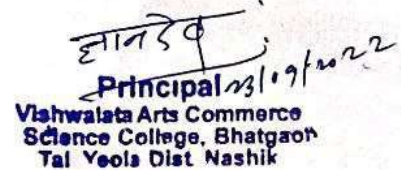 ज्ञानदेव
Principal 23/09/2022
Vishwalata Arts Commerce
Science College, Bhatgaon
Tal Yeola Dist Nashik